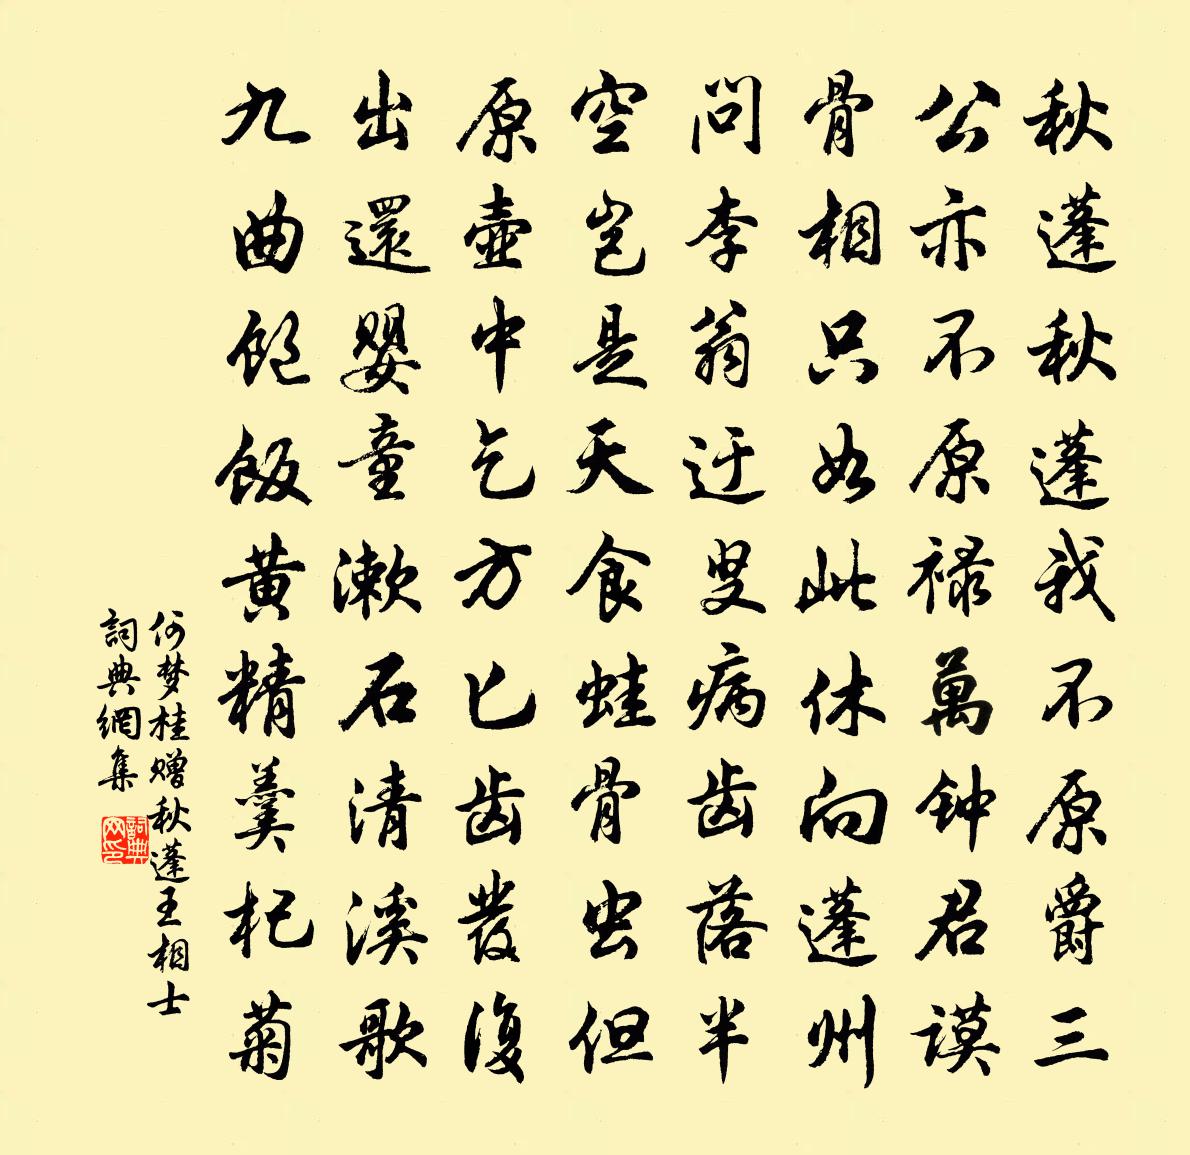 秋蓬秋蓬我不原爵三
公亦不原禄萬钟君謨
骨相只如此休向蓬州
問李翁迂叟病齿落半
空岂是天食蛙骨虫但
原壺中乞方匕齿發復
出還嬰童漱石清溪歌
九曲飽飯黄精羹杞菊
何梦桂赠秋蓬王相士
詞典網集
詞典网印